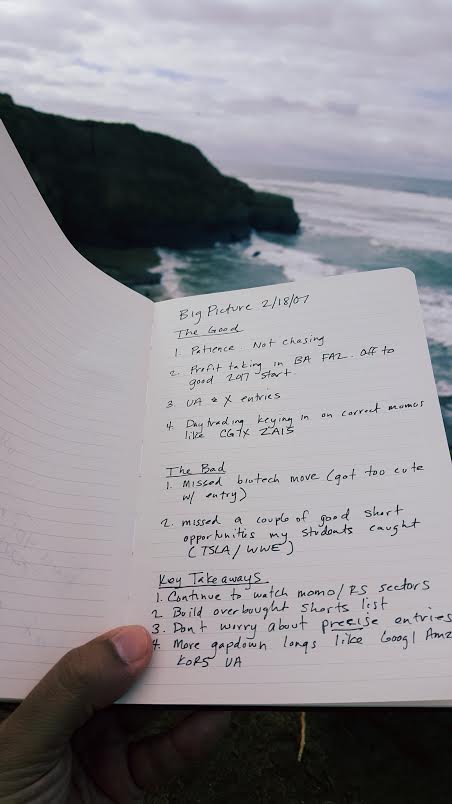 Big Picture 2/18/07
The Good
1. Patience. Not chasing
2. Profit taking in BA FAZ. Off to
good 2017 start.
3. UA & X entries
4. Day trading keying in on correct momos
like CGIX ZAIS
The Bad
1. Missed biotech move (got too cute
w/ entry)
2. missed a couple of good short
opportunities my students caught
(TSLA/WWE)
Key Takeaways
1. Continue to watch momo/RS sectors
2 Build overbought shorts list
3. Don't worry about precise entries
4. More gapdown longs like Googl Amz
KORS UA